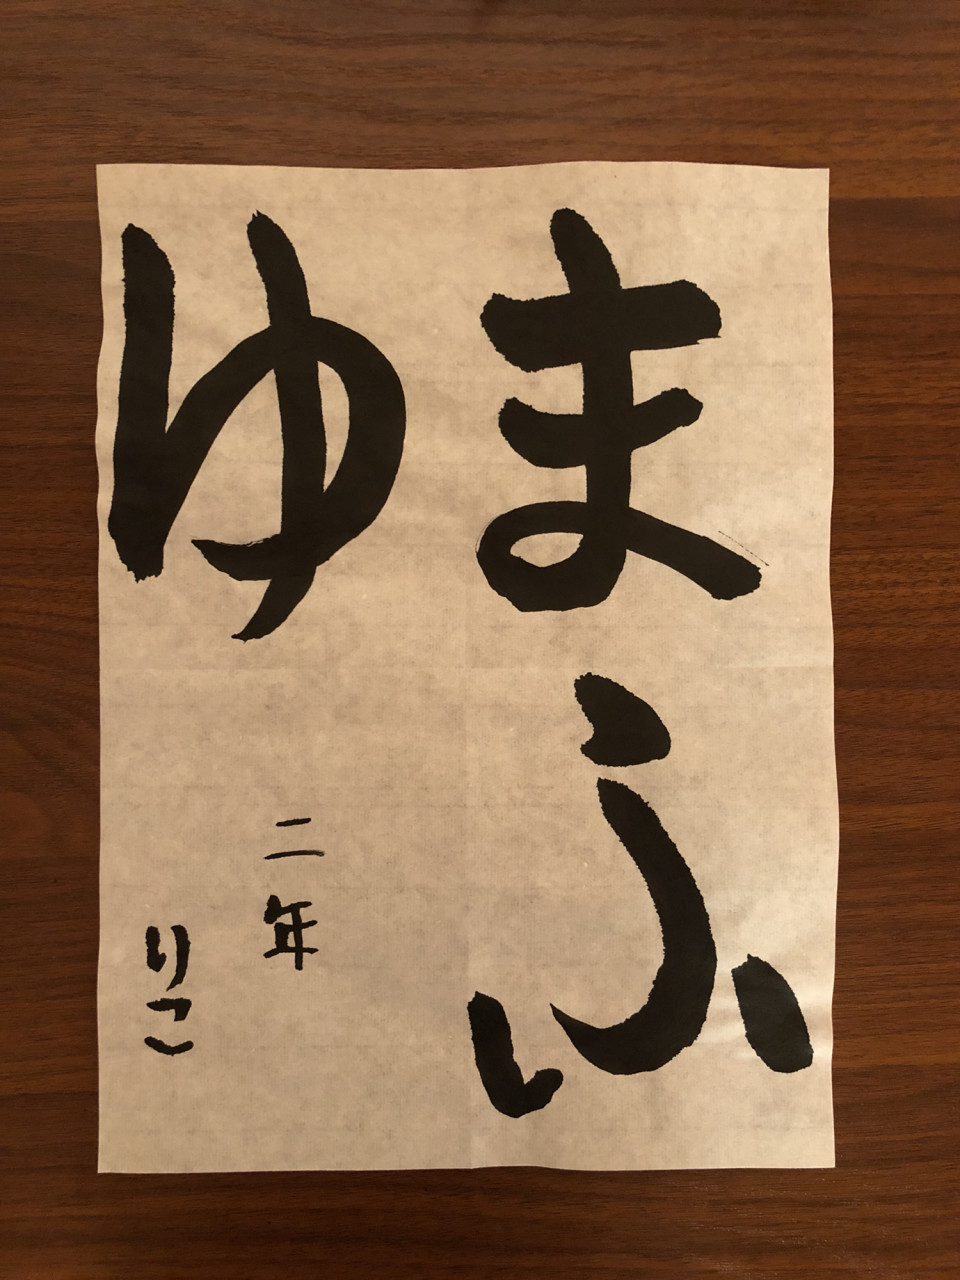 まふ
ゆ
二年
りこ